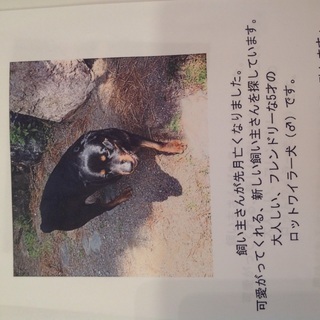 飼い主さんが先月亡くなりました。
可愛がってくれる、新しい飼い主さんを探しています。
大人しい、フレンドリーな5才の
ロットワイラー犬（♂）です。